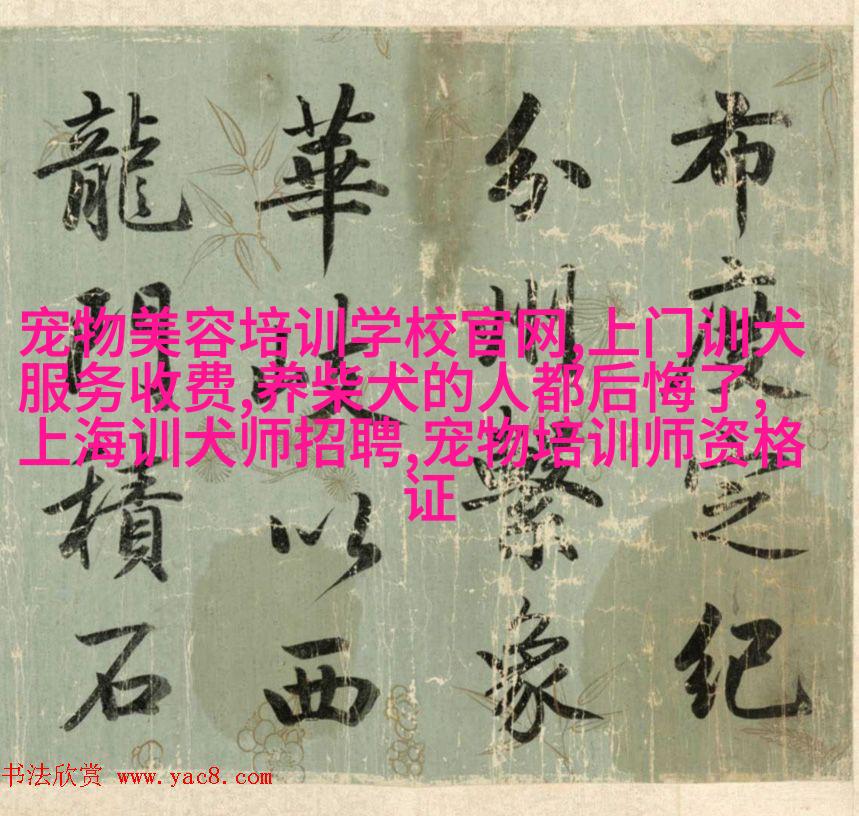 布度定紀
分州繫象
華岐以西
龍門積石
宠物美容培训学校官网,上门训犬
服务收费,养柴犬的人都后悔了,
上海训犬师招聘,宠物培训师资格
证
书法欣赏 www.yac8.com